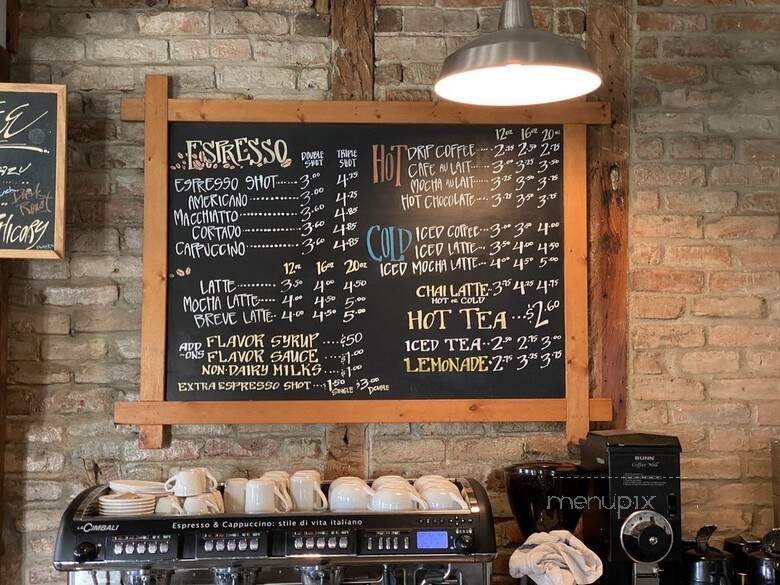 Dark
Roast
ESPRESSO DOUBLE SHOT TRIPLE SHOT
ESPRESSO SHOT 3.00 4.25
AMERICANO 3.00 4.25
MACCHIATTO 3.60 4.85
CORTADO 3.60 4.85
CAPPUCCINO 3.60 4.85
12oz 16oz 20oz
LATTE 3.50 4.00 4.50
MOCHA LATTE 4.00 4.50 5.00
BREVE LATTE 4.00 4.50 5.00
ADD-ONS
FLAVOR SYRUP ¢50
FLAVOR SAUCE $1.00
NON-DAIRY MILKS $1.00
EXTRA ESPRESSO SHOT $1.50 SINGLE $3.00 DOUBLE
12oz 16oz 20oz
HOT
DRIP COFFEE 2.25 2.50 2.75
CAFE AU LAIT 3.00 3.25 3.50
MOCHA AU LAIT 3.25 3.50 3.75
HOT CHOCOLATE 3.25 3.50 3.75
COLD
ICED COFFEE 3.00 3.50 4.00
ICED LATTE 3.50 4.00 4.50
ICED MOCHA LATTE 4.00 4.50 5.00
CHAI LATTE 3.75 4.25 4.75
HOT OR COLD
HOT TEA $2.60
ICED TEA 2.50 2.75 3.00
LEMONADE 2.75 3.25 3.75
BUNN
Coffee Mill
menupix
LA CIMBALI
Espresso & Cappuccino: stile di vita italiano